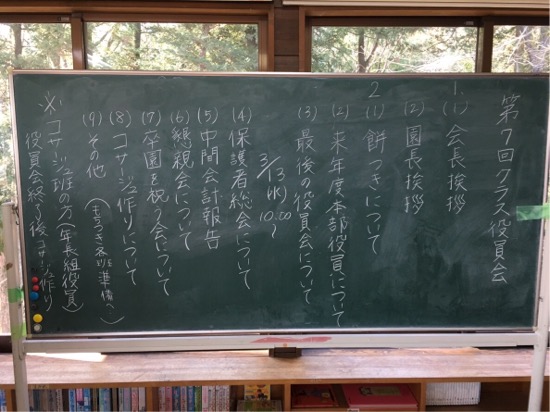 第7回クラス役員会
1.
(1) 会長挨拶
(2) 園長挨拶
2
(1) 餅つきについて
(2) 来年度本部役員について
(3) 最後の役員会について
3/13(水)10:00〜
(4) 保護者総会について
(5) 中間会計報告
(6) 懇親会について
(7) 卒園を祝う会について
(8) コサージュ作りについて
(9) その他 (もちつき各班準備へ)
※コサージュ班の方(年長組役員)
役員会終了後コサージュ作り